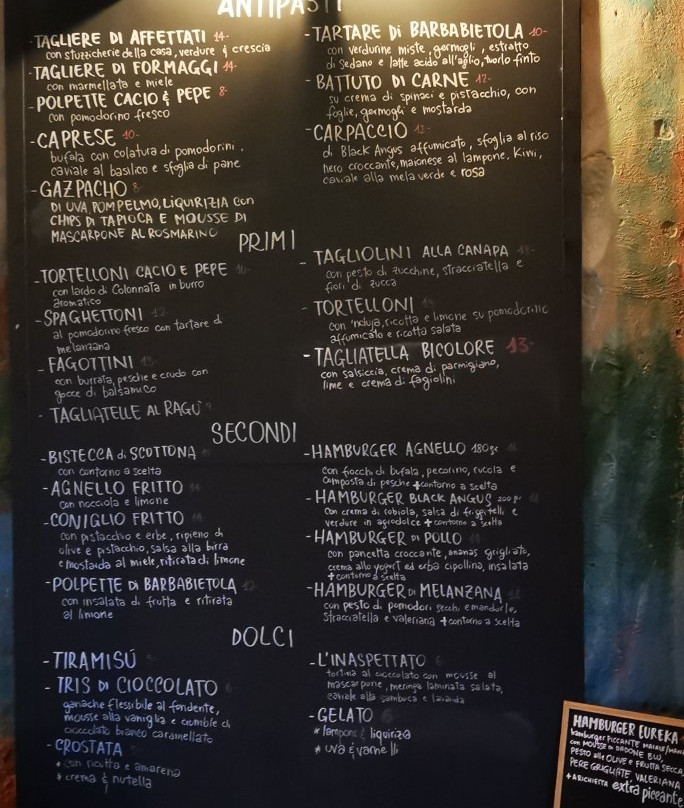 ANTIPASTI
- TAGLIERE DI AFFETTATI 14-
con stuzzicherie della casa, verdure & crescia
- TAGLIERE DI FORMAGGI 14-
con marmellata e miele
- POLPETTE CACIO & PEPE 8-
con pomodorino fresco
- CAPRESE 10-
bufala con colatura di pomodorini.
caviale al basilico e sfoglia di pane
- GAZPACHO 8-
DI UVA, POMPELMO, LIQUIRIZIA con
CHIPS DI TAPIOCA E MOUSSE DI
MASCARPONE AL ROSMARINO
- TARTARE Di BARBABIETOLA 10-
con verdurine miste, germogli, estratto
di Sedano e latte acido all'aglio, tuorlo finto
- BATTUTO DI CARNE 12-
su crema di spinaci e pistacchio, con
foglie, germogli e mostarda
- CARPACCIO
di Black Angus affumicato, sfoglia al riso
nero croccante, maionese al lampone, Kiwi,
caviale alla mela verde e rosa
PRIMI
- TORTELLONI CACIO E PEPE
con lardo di Colonnata in burro
aromatico
- SPAGHETTONI 12-
al pomodorino fresco con tartare di
melanzana
- FAGOTTINI
con burrata, pesche e crudo con
gocce di balsamico
- TAGLIATELLE AL RAGU' 9
- TAGLIOLINI ALLA CANAPA
con pesto di zucchine, stracciatella e
fiori di zucca
- TORTELLONI
con 'nduja, ricotta e limone su pomodorino
affumicato e ricotta salata
- TAGLIATELLA BICOLORE 13-
con salsiccia, crema di parmigiano,
lime e crema di fagiolini
SECONDI
- BISTECCA di SCOTTONA
con contorno a scelta
- AGNELLO FRITTO
con nocciola e limone
- CONIGLIO FRITTO
con pistacchio e erbe, ripieno di
olive e pistacchio, salsa alla birra
e mostarda al miele, ritirata di limone
- POLPETTE Di BARBABIETOLA
con insalata di frutta e ritirata
al limone
- HAMBURGER AGNELLO 180gr
con fiocchi di bufala, pecorino, rucola e
composta di pesche + contorno a scelta
- HAMBURGER BLACK ANGUS 200 gr
con crema di robiola, salsa di friggitelli e
verdure in agrodolce + contorno a scelta
- HAMBURGER DI POLLO
con pancetta croccante, ananas grigliato,
crema allo yogurt ed erba cipollina, insalata
+ contorno a scelta
- HAMBURGER DI MELANZANA
con pesto di pomodori secchi e mandorle,
stracciatella e valeriana + contorno a scelta
DOLCI
- TIRAMISÚ
- TRIS DI CIOCCOLATO 6
ganache flessibile al fondente,
mousse alla vaniglia e crumble di
cioccolato bianco caramellato
- CROSTATA
* con ricotta e amarena
* crema & nutella
- L'INASPETTATO 6
tortino al cioccolato con mousse al
mascarpone, meringa laminata salata,
caviale alla sambuca e lavanda
- GELATO 6
* lampone & liquirizia
* uva & varnelli
HAMBURGER EUREKA
hamburger PICCANTE MAIALE/
con MOUSSE DI
PESTO alle OLIVE E FRUTTA SECCA,
PERE GRIGLIATE, VALERIANA
+ A RICHIESTA extra piccante